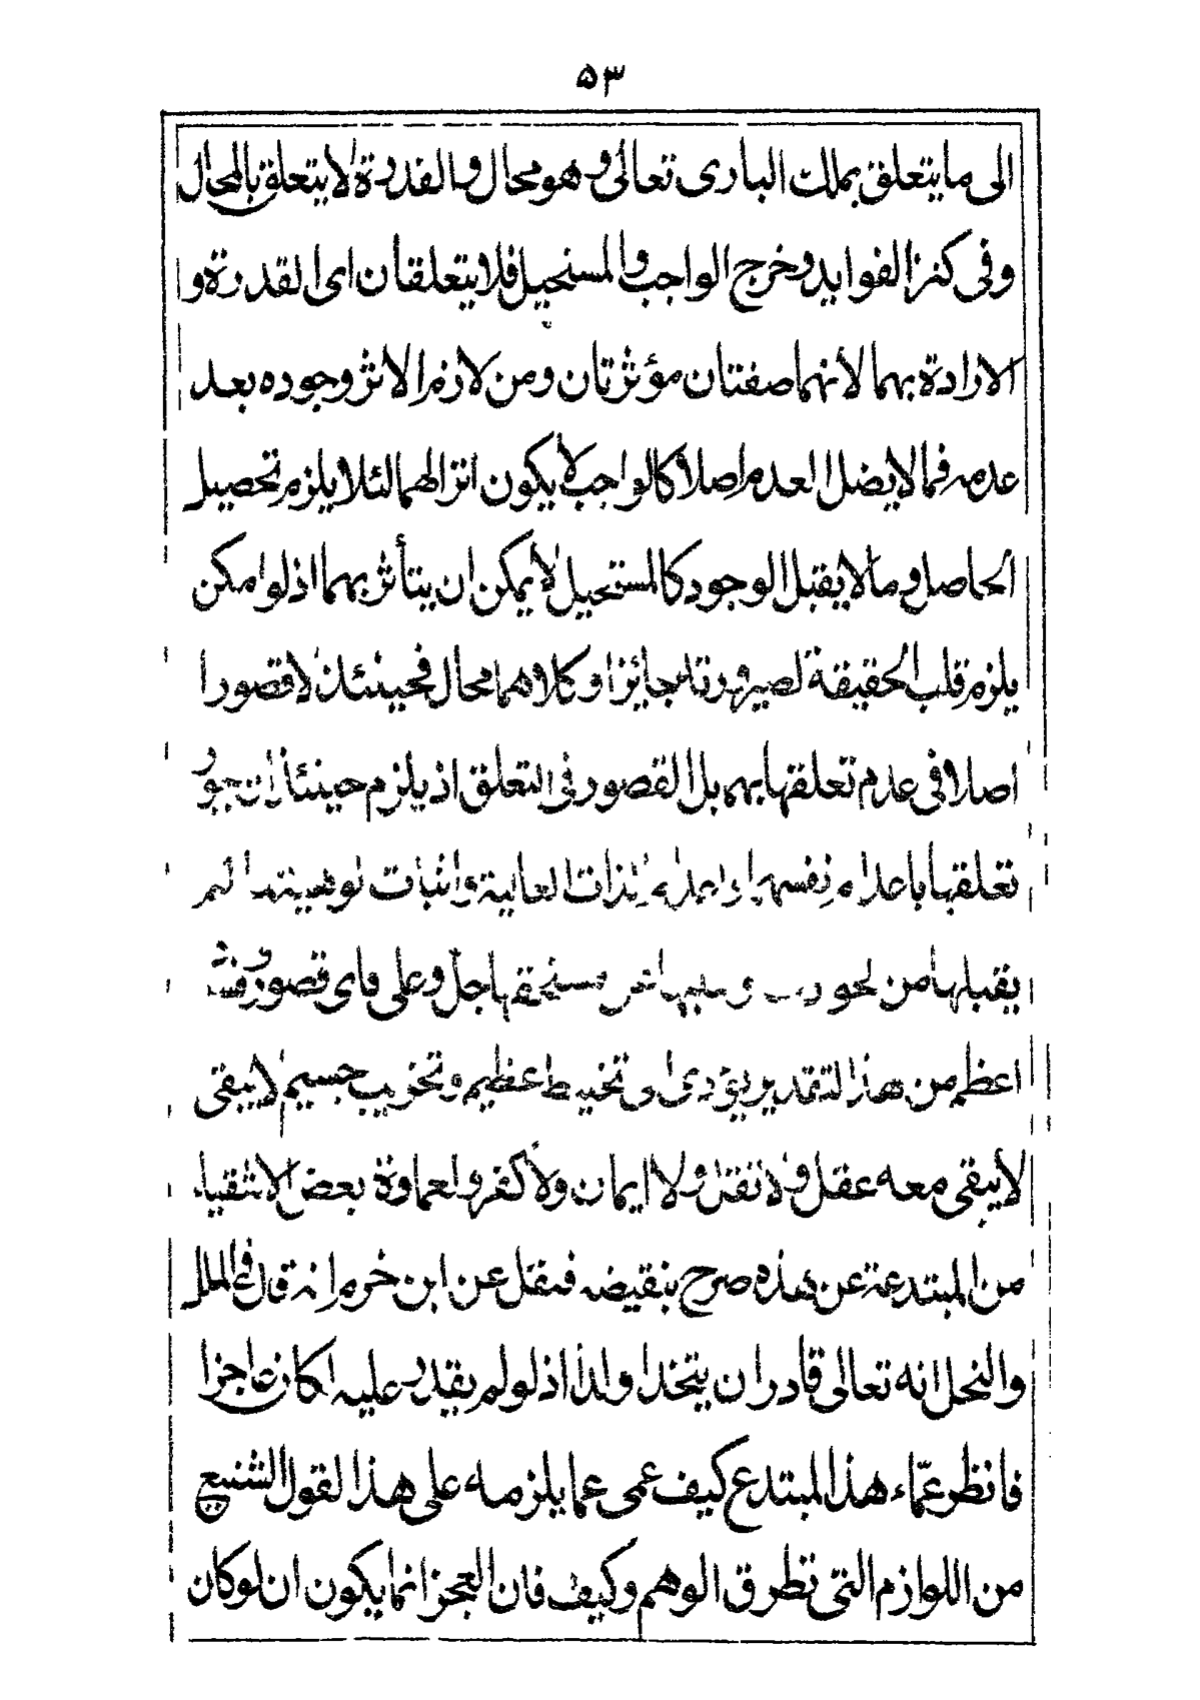 ۵۳
الى ما يتعلق بملك البارى تعالى وهو محال والقدرة لا يتعلق بالمحال
وفى كنز الفوايد وخرج الواجب والمستحيل فلا يتعلقان اى القدرة وا
لارادة بهما لانهما صفتان مؤثرتان ومن لازم الاثر وجوده بعد
عدمه فما لا يضل العدم اصلا كالواجب لا يكون اثرا لهما لئلا يلزم تحصيل
الحاصل وما لا يقبل الوجود كالمستحيل لا يمكن ان يتأثر بهما اذ لو امكن
يلزم قلب الحقيقة لصيرورته جائزا وكلاهما محال فحينئذ لا قصورا
اصلا فى عدم تعلقها بهما بل القصور فى التعلق اذ يلزم حينئذ ان يجوز
تعلقها باعدام نفسها واعدام الذات العالية واثبات لوهيته لم
يقبلها من وسلبها مستحقها جل وعلى فاى قصور و
اعظم من هذا التقدير يؤدى تخيط عظيم وتخريب جسيم لا يبقى
لا يبقى معه عقل ولا نقل ولا ايمان ولا كفر ولعماوة بعض الاشقياء
من المبتدعة عن هذه صرح بنقيضه فنقل عن ابن خرم انه قال فى الملل
والنحل انه تعالى قادر ان يتخذ ولدا اذ لو لم يقدر عليه لكان عاجزا
فانظر عمّاء هذا المبتدع كيف عمى عما يلزمه على هذا القول الشنيع
من اللوازم التى تطرق الوهم وكيف فان العجز انما يكون ان لو كان